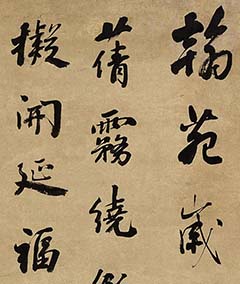 翰苑嵗
蒨霧繞
擬開延福